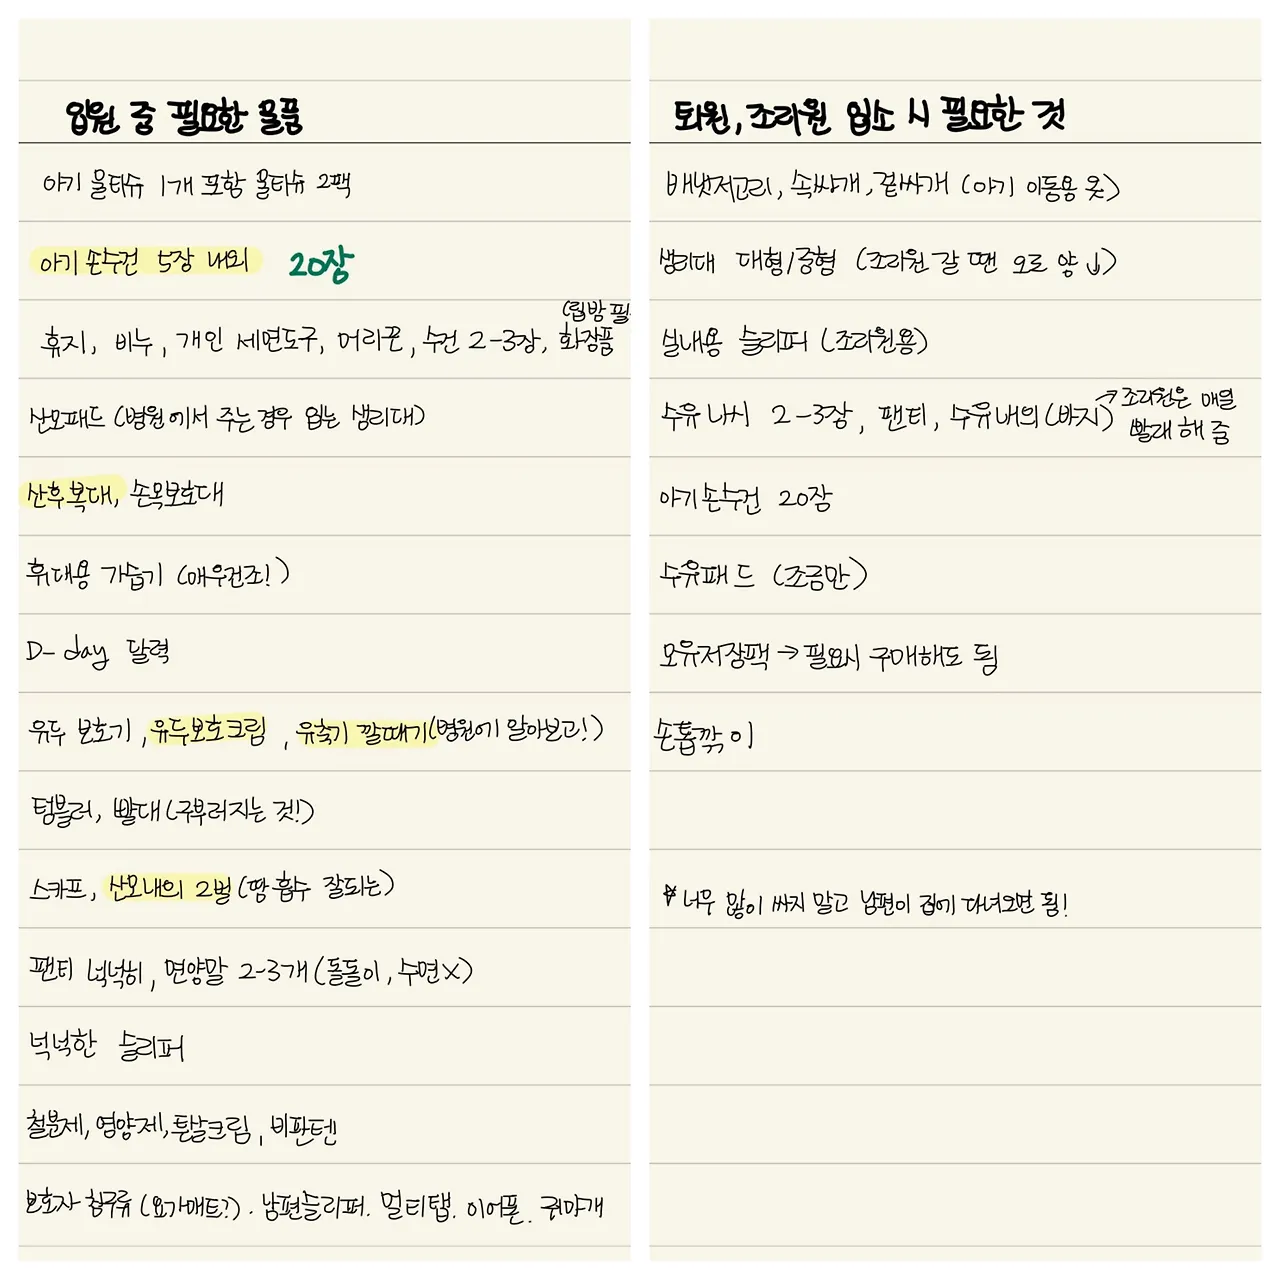 입원 중 필요한 물품
아기 물티슈 1개 포함 물티슈 2팩
아기 손수건 5장 내외 20장
(립밤 필
휴지, 비누, 개인 세면도구, 머리끈, 수건 2-3장, 화장품
산모패드 (병원에서 주는 경우 있는 생리대)
산후복대, 손목보호대
휴대용 가습기 (매우건조!)
D-day 달력
유두 보호기, 유두보호크림, 유축기 깔때기(병원에 알아보고!)
텀블러, 빨대(구부러지는 것!)
스카프, 산모내의 2벌 (땀 흡수 잘되는)
팬티 넉넉히, 면양말 2-3개 (돌돌이, 수면X)
넉넉한 슬리퍼
철분제, 영양제, 튼살크림, 비판텐
보호자 침구류 (요가매트?). 남편슬리퍼. 멀티탭. 이어폰. 귀마개
퇴원, 조리원 입소 시 필요한 것
배냇저고리, 속싸개, 겉싸개 (아기 이동용 옷)
생리대 대형/중형 (조리원 갈 땐 오로 양↓)
실내용 슬리퍼 (조리원용)
수유나시 2-3장, 팬티, 수유내의(바지) → 조리원은 매일
빨래 해 줌
아기손수건 20장
수유패드 (조금만)
모유저장팩 → 필요시 구매해도 됨
손톱깎이
* 너무 많이 싸지 말고 남편이 집에 다녀오면 됨!